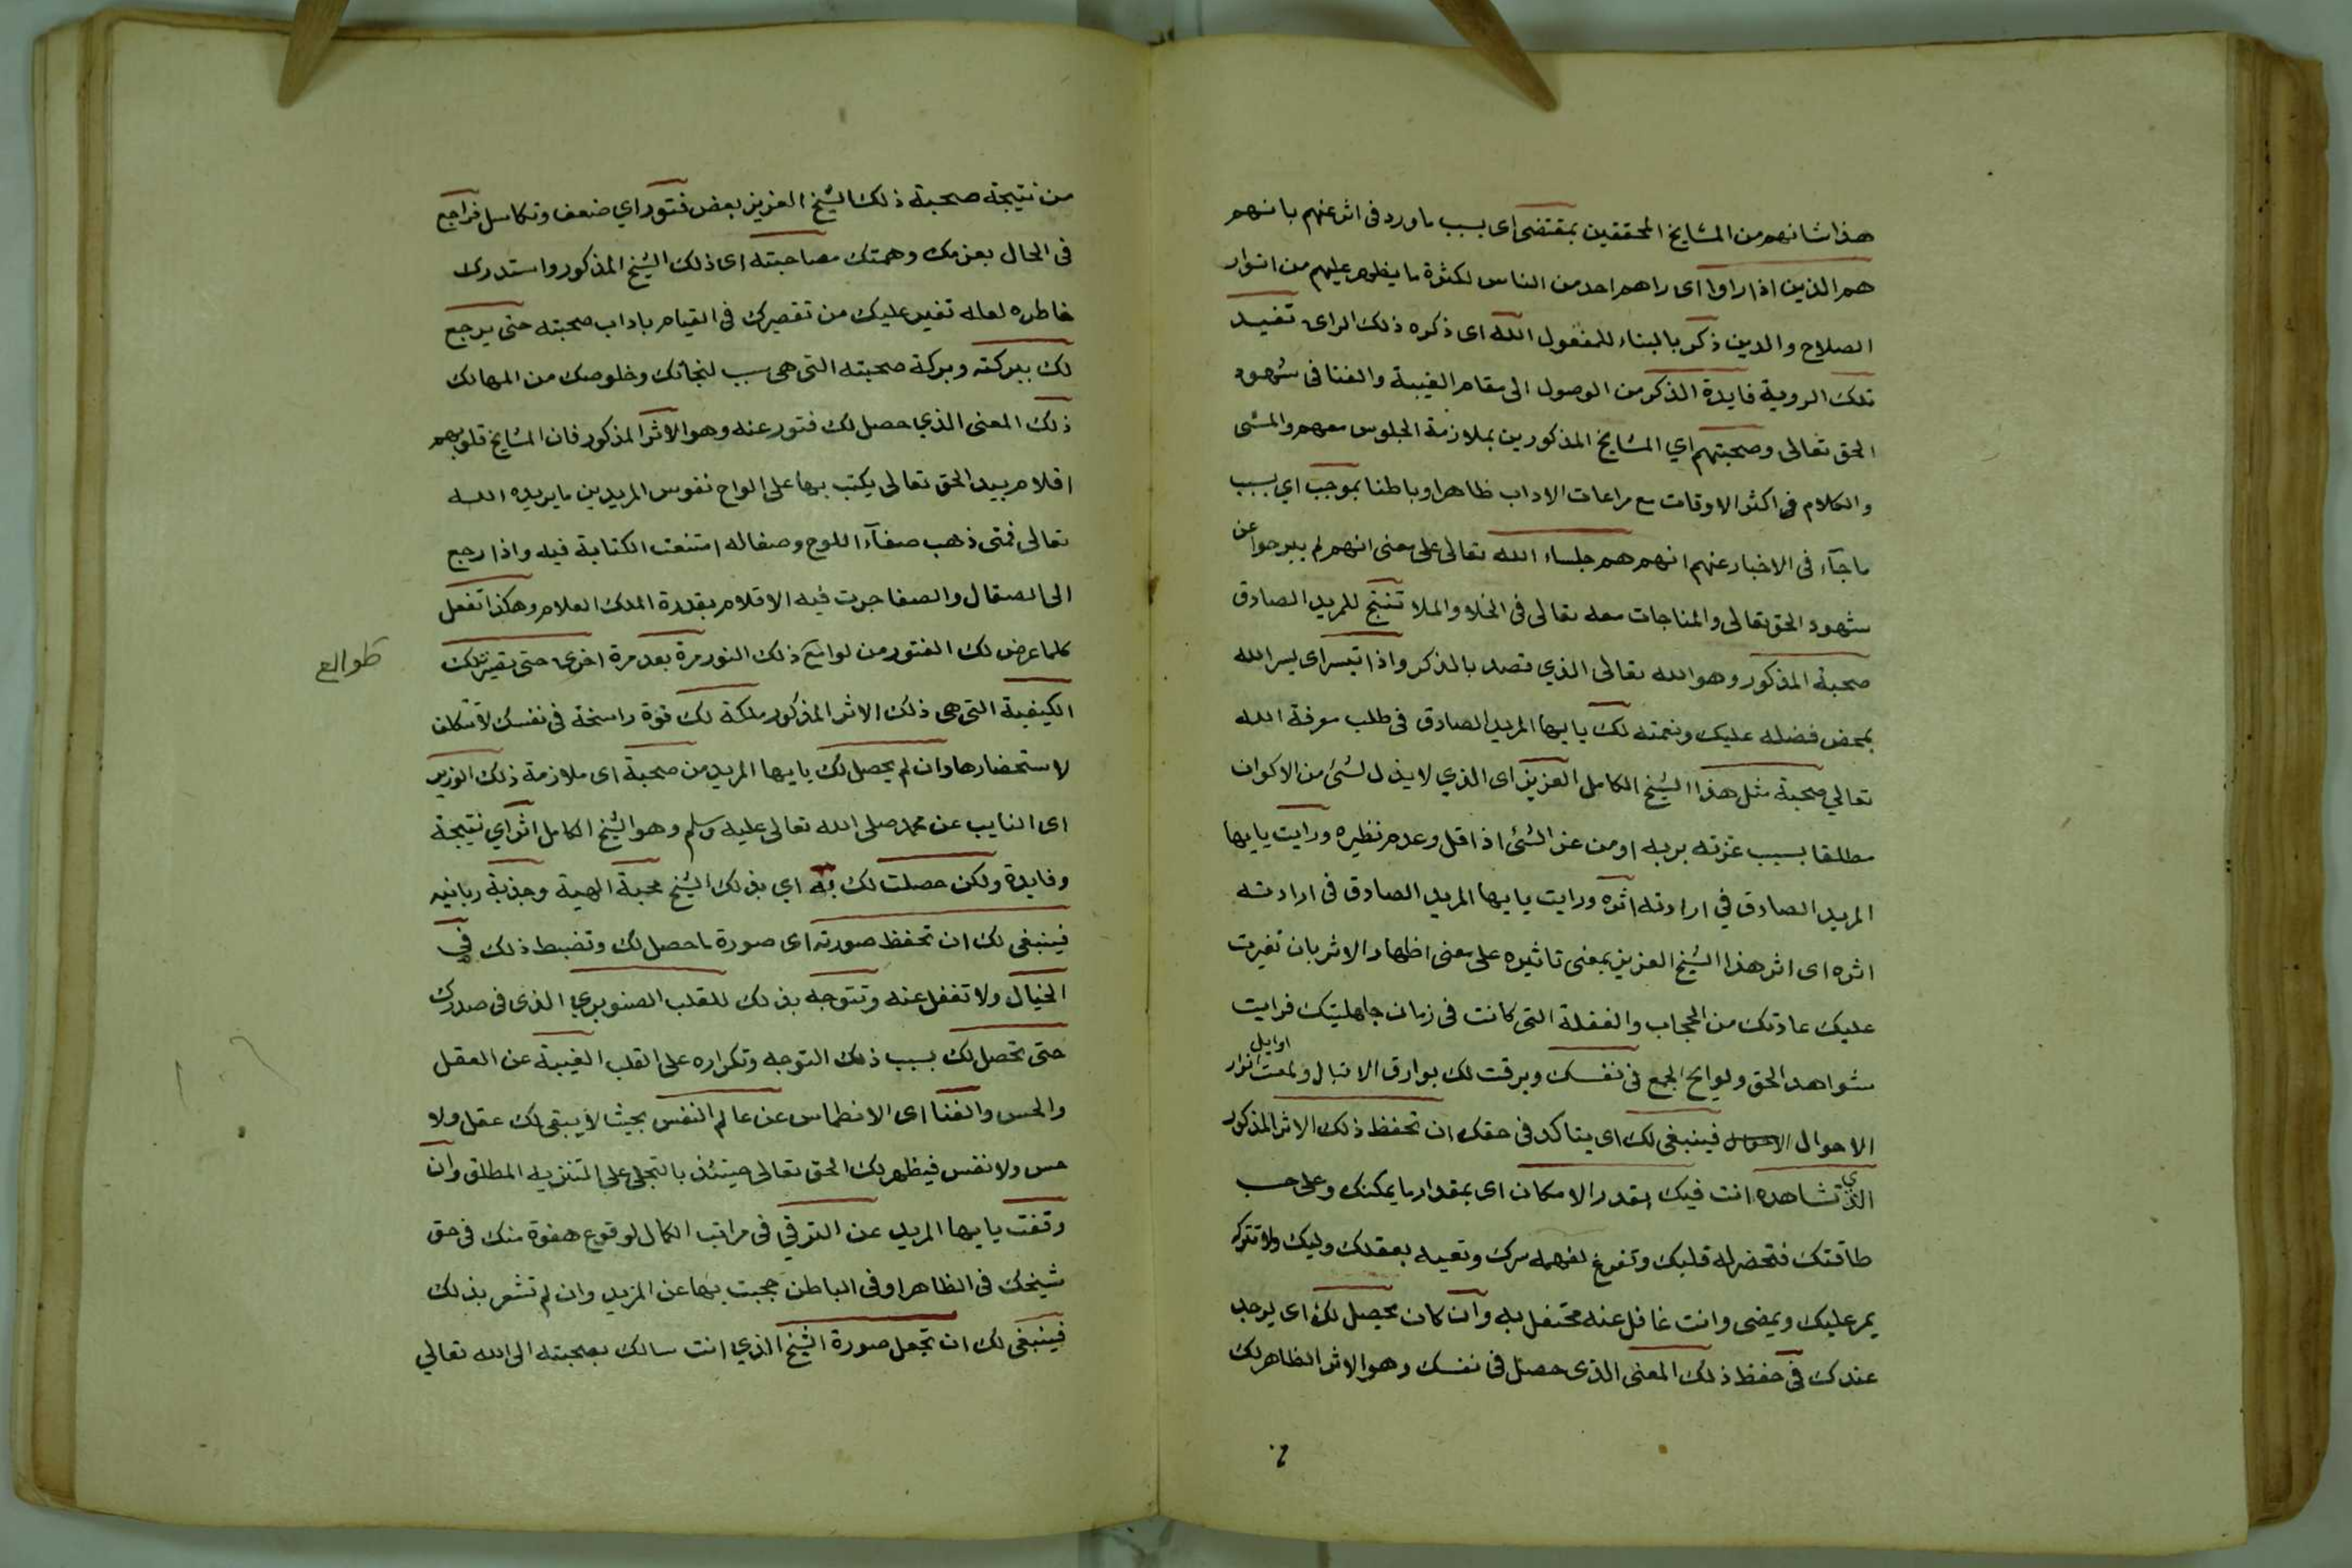 هذا شانهم من المشايخ المحققين بمقتضى اى بسبب ما ورد فى اثر عنهم بانهم
هم الذين اذا راوا اى راهم احد من الناس لكثرة ما يظهر عليهم من انوار
الصلاح والدين ذكر بالبناء للمفعول الله اى ذكره ذلك الراى تفيد
تلك الروية فايدة الذكر من الوصول الى مقام الغيبة والفنا فى شهود
الحق تعالى وصحبتهم اي المشايخ المذكورين بملازمة الجلوس معهم والمشى
والكلام فى اكثر الاوقات مع مراعات الاداب ظاهرا وباطنا بموجب اي بسبب
ماجآء فى الاخبار عنهم انهم هم جلساء الله تعالى على معنى انهم لم يبرحوا عن
شهود الحق تعالى والمناجات معه تعالى فى الخلا والملا تنتج للمريد الصادق
صحبة المذكور وهو الله تعالى الذي قصد بالذكر واذا تيسر اى يسر الله
بمحض فضله عليك ونعمته لك يا يها المريد الصادق فى طلب معرفة الله
تعالي صحبة مثل هذا الشيخ الكامل العزيز اى الذي لا يذل لشئ من الاكوان
مطلقا بسبب عزته بربه او من عز الشئ اذا قل وعدم نظيره ورايت يا يها
المريد الصادق في ارادته اثره ورايت يا يها المريد الصادق فى ارادته
اثره اى اثر هذا الشيخ العزيز بمعنى تاثيره على معنى اظهار الاثر بان تغيرت
عليك عادتك من الحجاب والغفلة التى كانت فى زمان جاهليتك فرايت
شواهد الحق ولوايح الجمع فى نفسك وبرقت لك بوارق الاقبال ولمعت اوايل انوار
الاحوال فينبغى لك اى يتاكد فى حقك ان تحفظ ذلك الاثر المذكور
الذي تشاهده انت فيك بقدر الامكان اى بمقدار ما يمكنك وعلى حسب
طاقتك فتحضر له قلبك وتفرغ لفهمه سرك وتعيه بعقلك ولبك ولا تتركه
يمر عليك ويمضى وانت غافل عنه محتفل به وان كان يحصل لك اى يوجد
عندك فى حفظ ذلك المعنى الذى حصل فى نفسك وهو الاثر الظاهر لك
من نتيجة صحبة ذلك الشيخ العزيز بعض فتور اي ضعف وتكاسل فراجع
فى الحال بعزمك وهمتك مصاحبته اى ذلك الشيخ المذكور واستدرك
خاطره لعله تغير عليك من تقصيرك فى القيام باداب صحبته حتى يرجع
لك ببركته وبركة صحبته التى هى سبب لنجاتك وخلوصك من المهالك
ذلك المعنى الذي حصل لك فتور عنه وهو الاثر المذكور فان المشايخ قلوبهم
اقلام بيد الحق تعالى يكتب بها على الواح نفوس المريدين ما يريده الله
تعالى فمتى ذهب صفآء اللوح وصقاله امتنعت الكتابة فيه واذا رجع
الى الصقال والصفا جرت فيه الاقلام بقدرة الملك العلام وهكذا تفعل
كلما عرض لك الفتور من لوامع ذلك النور مرة بعد مرة اخرى حتى تصير تلك
طوالع
الكيفية التى هى ذلك الاثر المذكور ملكة لك قوة راسخة فى نفسك لا تتكلف
لاستحضارها وان لم يحصل لك يا يها المريد من صحبة اى ملازمة ذلك العزيز
اى النايب عن محمد صلى الله تعالى عليه وسلم وهو الشيخ الكامل اثر اي نتيجة
وفايدة ولكن حصلت لك به اي بذلك الشيخ محبة الهية وجذبة ربانيه
فينبغى لك ان تحفظ صورته اى صورة ما حصل لك وتضبط ذلك في
الخيال ولا تغفل عنه وتتوجه بذلك للقلب الصنوبري الذى فى صدرك
حتى تحصل لك بسبب ذلك التوجه وتكراره على القلب الغيبة عن العقل
والحس والفنا اى الانطماس عن عالم النفس بحيث لا يبقى لك عقل ولا
حس ولا نفس فيظهر لك الحق تعالى حينئذ بالتجلى على التنزيه المطلق وان
وقفت يا يها المريد عن الترقي فى مراتب الكمال لوقوع هفوة منك فى حق
شيخك فى الظاهر او فى الباطن حجبت بها عن المزيد وان لم تشعر بذلك
فينبغى لك ان تجعل صورة الشيخ الذي انت سالك بصحبته الى الله تعالي